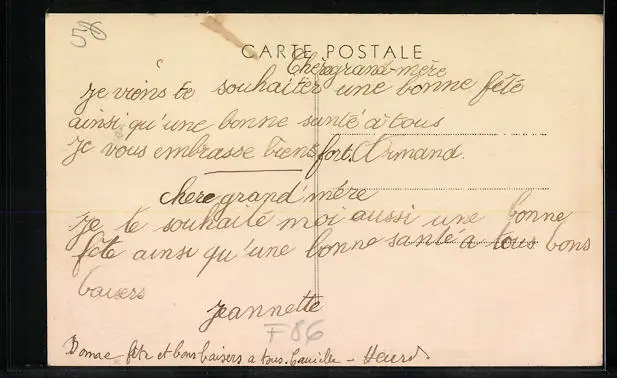 58
CARTE POSTALE
Chère grand-mère
Je viens te souhaiter une bonne fête
ainsi qu'une bonne santé à tous
Je vous embrasse bien fort. Armand.
chere grand'mère
Je te souhaite moi aussi une bonne
fête ainsi qu'une bonne santé à tous bons
baisers
Jeannette
F86
Bonne fête et bons baisers a tous.